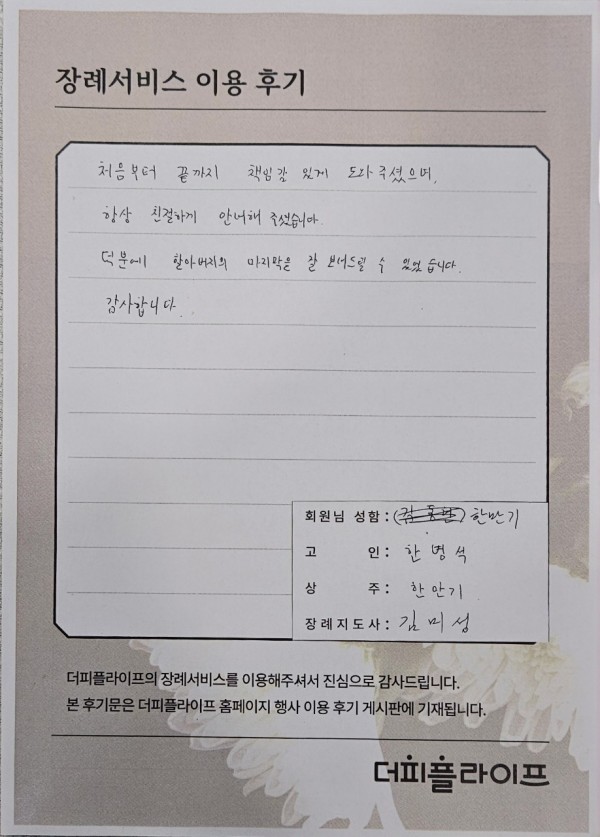 장례서비스 이용 후기
처음부터 끝까지 책임감 있게 도와주셨으며,
항상 친절하게 안내해 주셨습니다.
덕분에 할아버지의 마지막을 잘 보내드릴 수 있었습니다.
감사합니다.
회원님 성함 : 한만기
고 인 : 한명석
상 주 : 한만기
장례지도사 : 김미성
더피플라이프의 장례서비스를 이용해주셔서 진심으로 감사드립니다.
본 후기문은 더피플라이프 홈페이지 행사 이용 후기 게시판에 기재됩니다.
더피플라이프